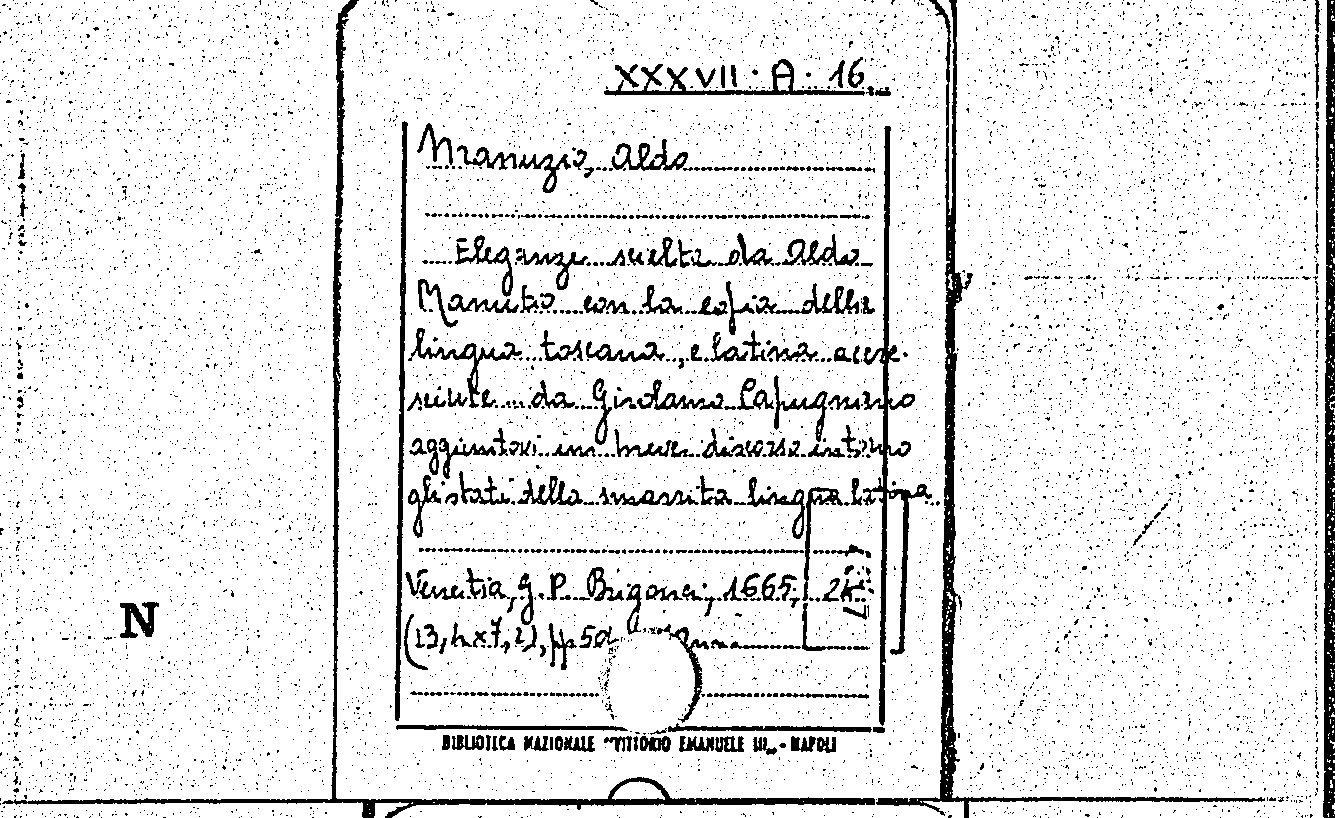 XXXVII · A · 16
Manuzio, Aldo
Eleganze scelte da Aldo
Manutio con la copia della
lingua toscana, e latina accre-
sciute da Girolamo Capugnano
aggiuntovi un breve discorso intorno
gli stati della smarrita lingua latina
Venetia, G. P. Brigonci, 1665, 24°
(13,4x7,2), pp
N
BIBLIOTECA NAZIONALE "VITTORIO EMANUELE III„ - NAPOLI